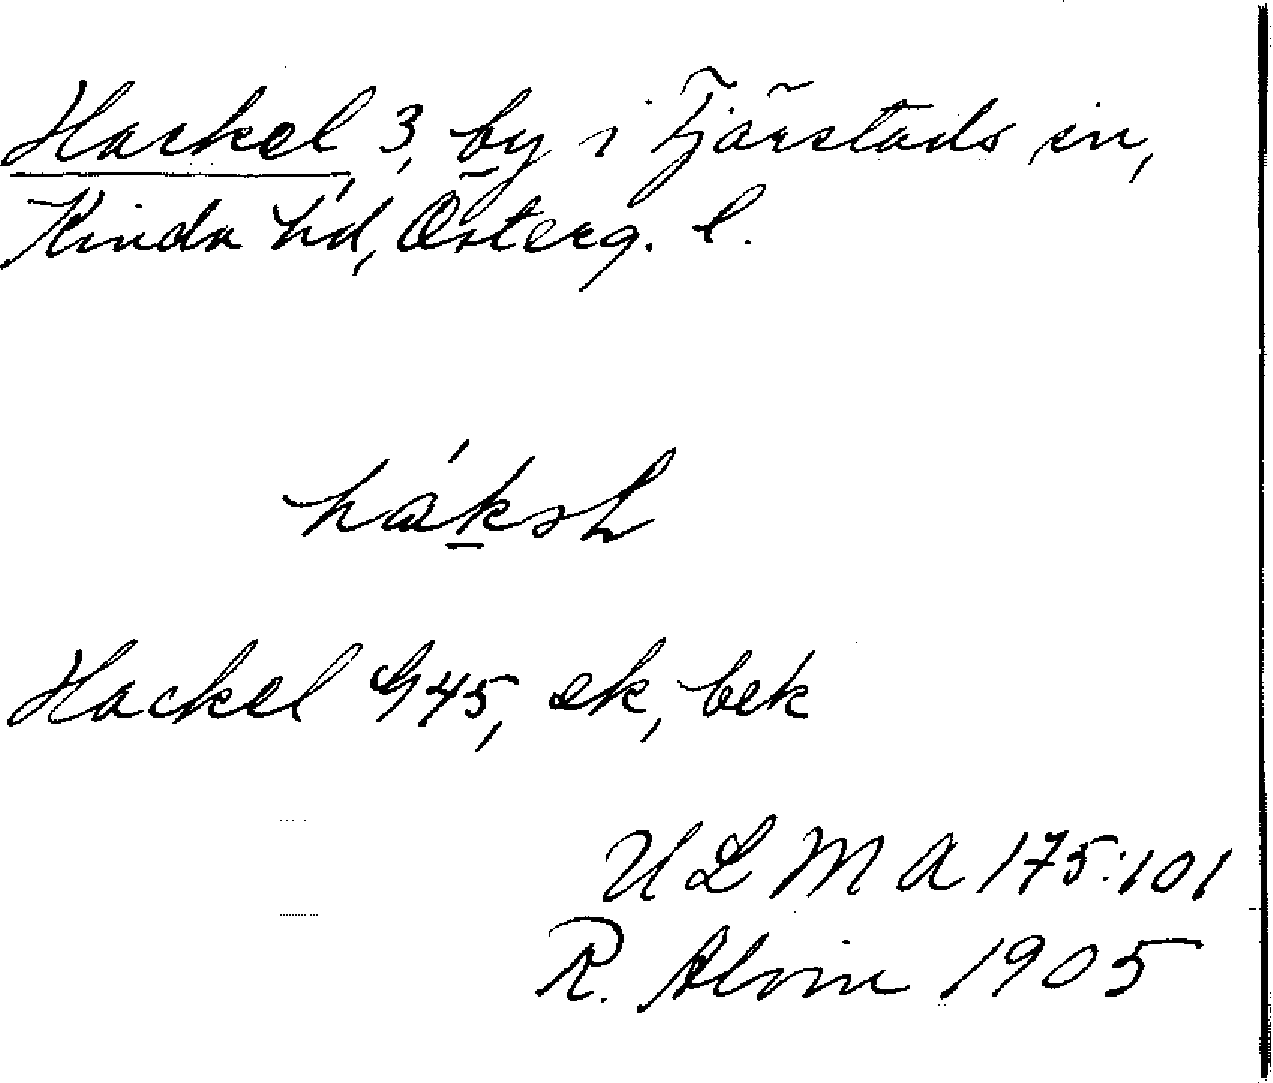 Hackel 3, by i Tjärstads sn,
Kinda hd, Österg. l.
Hackel G45, ek, bek
U L M A 175:101
R. Alvin 1905